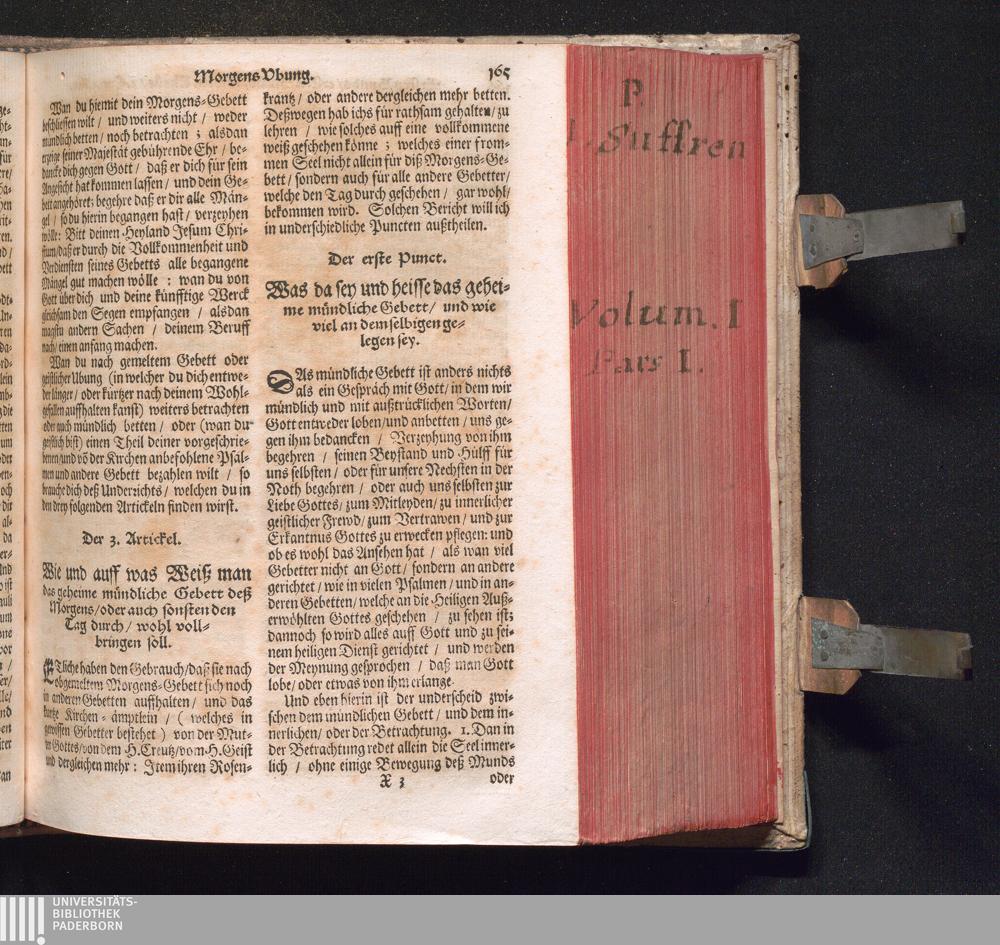 Morgens Vbung. 165
Wan du hiemit dein Morgens-Gebett
beschliessen wilt / und weiters nicht / weder
mündlich betten / noch betrachten ; alsdan
erzeige seiner Majestät gebührende Ehr / be-
dancke dich gegen Gott / daß er dich für sein
Angesicht hat kommen lassen / und dein Ge-
bett angehöret: begehre daß er dir alle Män-
gel / so du hierin begangen hast / verzeyhen
wölle: Bitt deinen Heyland Jesum Chri-
stum/daß er durch die Vollkommenheit und
Verdiensten seines Gebetts alle begangene
Mängel gut machen wölle : wan du von
Gott über dich und deine künfftige Werck
gleichsam den Segen empfangen / alsdan
magstu andern Sachen / deinem Beruff
nach/ einen anfang machen.
Wan du nach gemeltem Gebett oder
geistlicher Ubung (in welcher du dich entwe-
der länger / oder kürtzer nach deinem Wohl-
gefallen auffhalten kanst) weiters betrachten
oder auch mündlich betten / oder (wan du
geistlich bist) einen Theil deiner vorgeschrie-
benen/und võ der Kirchen anbefohlene Psal-
men und andere Gebett bezahlen wilt / so
brauche dich deß Underrichts / welchen du in
den drey folgenden Artickeln finden wirst.
Der 3. Artickel.
Wie und auff was Weiß man
das geheime mündliche Gebett deß
Morgens/oder auch sonsten den
Tag durch / wohl voll-
bringen soll.
ETliche haben den Gebrauch/daß sie nach
obgemeltem Morgens-Gebett sich noch
in anderen Gebetten auffhalten / und das
kurtze Kirchen-ämptlein / ( welches in
gewissen Gebetter bestehet ) von der Mut-
ter Gottes/von dem H.Creutz/vom H.Geist
und dergleichen mehr : Item ihren Rosen-
krantz / oder andere dergleichen mehr betten.
Deßwegen hab ichs für rathsam gehalten/zu
lehren / wie solches auff eine vollkommene
weiß geschehen könne ; welches einer from-
men Seel nicht allein für diß Morgens-Ge-
bett / sondern auch für alle andere Gebetter/
welche den Tag durch geschehen / gar wohl/
bekommen wird. Solchen Bericht will ich
in underschiedliche Puncten außtheilen.
Der erste Punct.
Was da sey und heisse das gehei-
me mündliche Gebett/ und wie
viel an demselbigen ge-
legen sey.
DAs mündliche Gebett ist anders nichts
als ein Gespräch mit Gott/ in dem wir
mündlich und mit außtrücklichen Worten/
Gott entweder loben/und anbetten / uns ge-
gen ihm bedancken / Verzeyhung von ihm
begehren / seinen Beystand und Hülff für
uns selbsten / oder für unsere Nechsten in der
Noth begehren / oder auch uns selbsten zur
Liebe Gottes/ zum Mitleyden/ zu innerlicher
geistlicher Frewd/ zum Vertrawen / und zur
Erkantnus Gottes zu erwecken pflegen: und
ob es wohl das Ansehen hat / als wan viel
Gebetter nicht an Gott / sondern an andere
gerichtet / wie in vielen Psalmen / und in an-
deren Gebetten / welche an die Heiligen Auß-
erwöhlten Gottes geschehen / zu sehen ist;
dannoch so wird alles auff Gott und zu sei-
nem heiligen Dienst gerichtet / und werden
der Meynung gesprochen / daß man Gott
lobe/ oder etwas von ihm erlange.
Und eben hierin ist der underscheid zwi-
schen dem mündlichen Gebett / und dem in-
nerlichen/ oder der Betrachtung. 1. Dan in
der Betrachtung redet allein die Seel inner-
lich / ohne einige Bewegung deß Munds
X 3 oder
P.
Suffren
Volum. I
Pars I.
UNIVERSITÄTS-
BIBLIOTHEK
PADERBORN